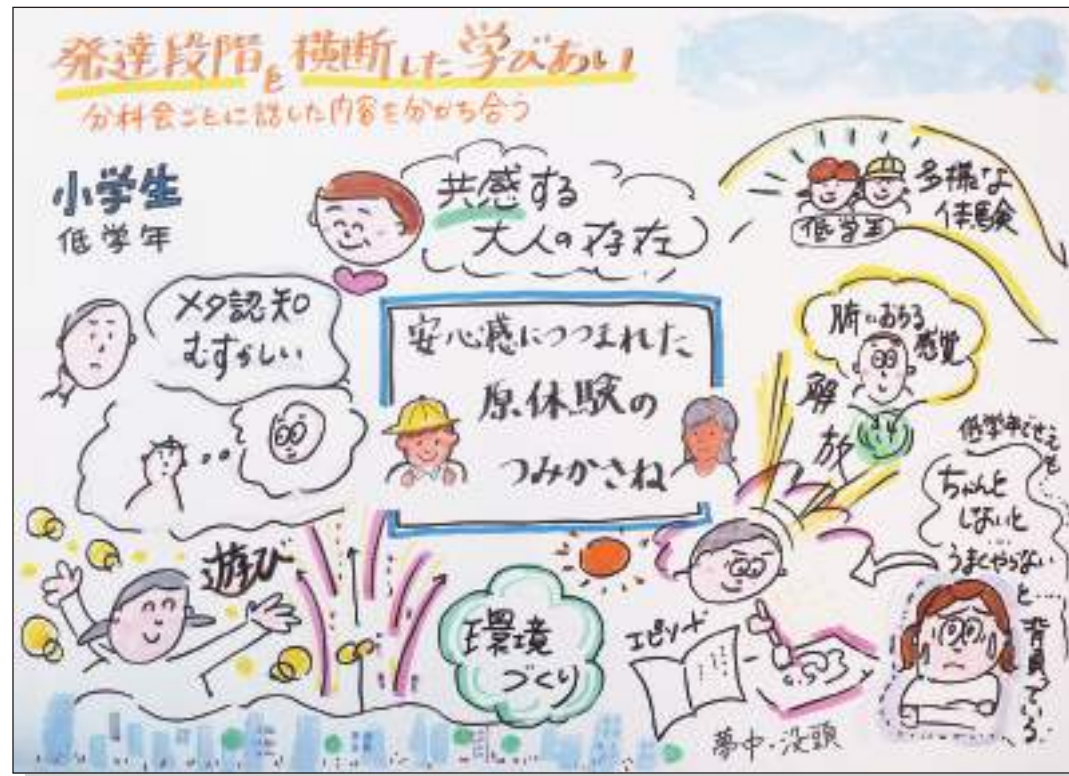 発達段階を横断した学びあい
分科会ごとに話した内容を分かち合う
小学生
低学年
共感する
大人の存在
多様な
体験
低学年
メタ認知
むずかしい
安心感につつまれた
原体験の
つみかさね
腑におちる
感覚
解放
低学年でさえも…
ちゃんと
しないと
うまくやらない
と…
背負っている
遊び
環境
づくり
エピソード
夢中・没頭